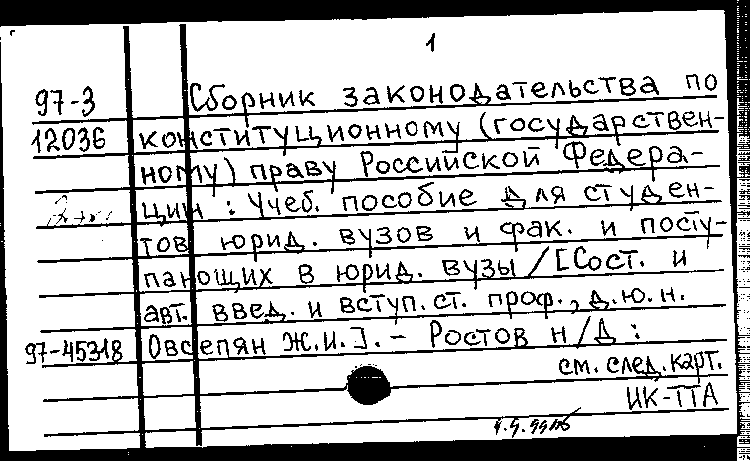 1
97-3 Сборник законодательства по
12036 конституционному (государствен-
ному) праву Российской Федера-
ции : Учеб. пособие для студен-
тов юрид. вузов и фак. и посту-
пающих в юрид. вузы / [Сост. и
авт. введ. и вступ. ст. проф., д.ю.н.
97-45318 Овсепян Ж.И.]. - Ростов н/Д :
см. след. карт.
ИК-ТТА